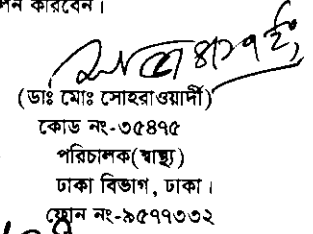 করিবেন।
(ডাঃ মোঃ সোহরাওয়ার্দী)
কোড নং-৩৫৪৭৫
পরিচালক(স্বাস্থ্য)
ঢাকা বিভাগ, ঢাকা।
ফোন নং-৯৫৭৭৩৩২